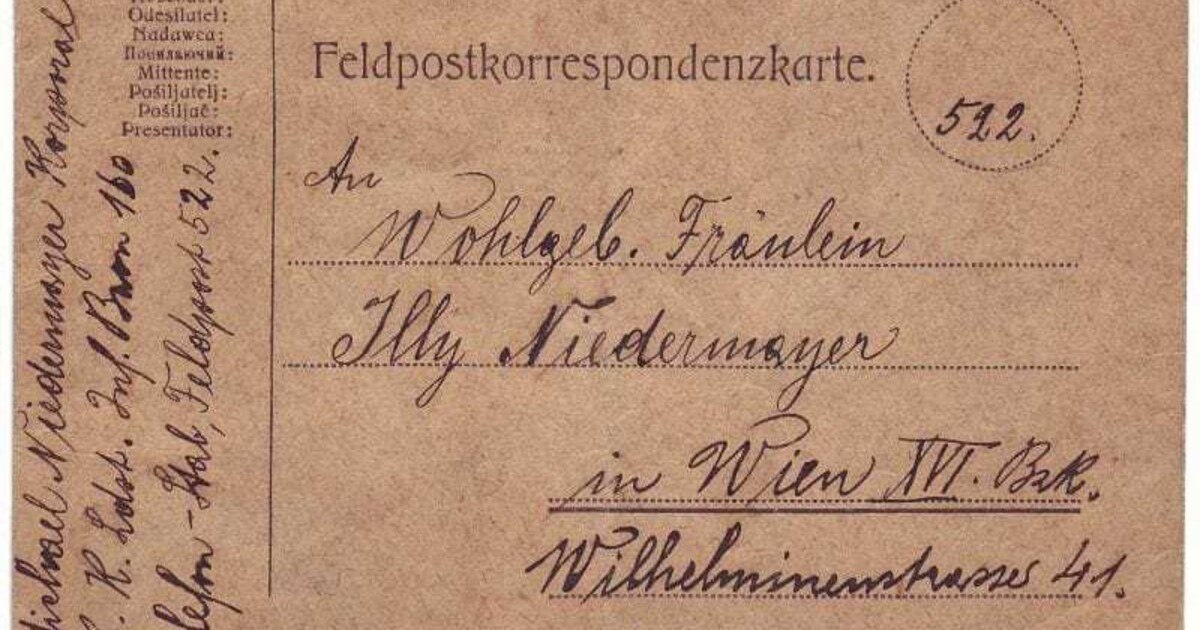 Odesílatel:
Nadawca:
Посилаючий:
Mittente:
Pošiljatelj:
Pošiljač:
Presentator:
Michael Niedermayer Korporal
K. Ldst. Inf. Baon 160
Stab, Feldpost 522.
Feldpostkorrespondenzkarte.
522.
An
Wohlgeb. Fräulein
Illy Niedermayer
in Wien XVI. Bzk.
Wilhelminenstrasse 41.